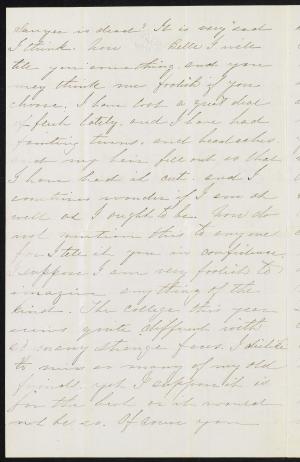 Sawyer is dead? It is very sad
I think. Now Belle I will
tell you something, and you
may think me foolish if you
choose. I have lost a great deal
of flesh lately, and I have had
fainting turns, and headaches
and my hair fell out so that
I have had it cut. and I
sometimes wonder if I am as
well as I ought to be. Now do
not mention this to anyone
for I tell it you in confidence.
I suppose I am very foolish to
imagine anything of the
kind. The college this year
seems quite different with
so many strange faces. I dislike
to miss so many of my old
friends, yet I suppose it is
for the best or it would
not be so. Of course you